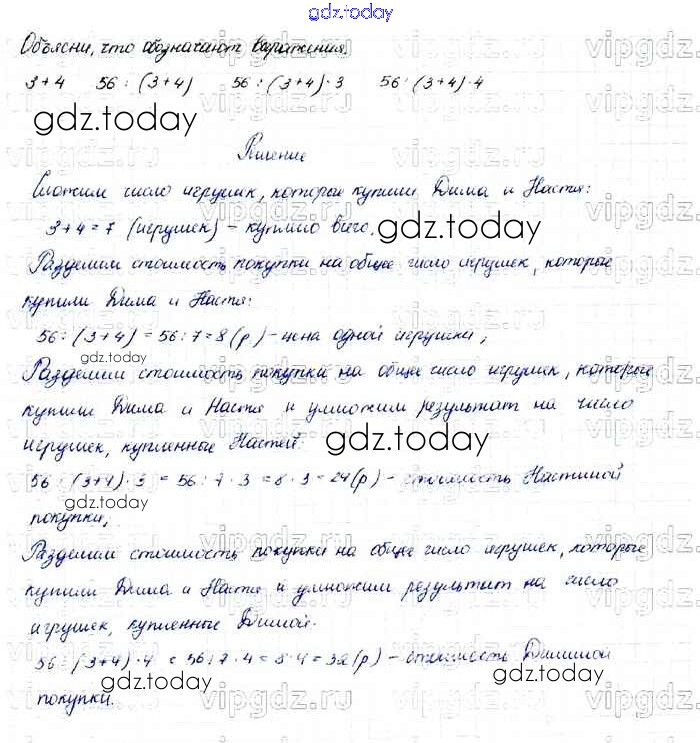 gdz.today
Объясни, что обозначают выражения.
3+4 56 : (3+4) 56 : (3+4)·3 56 : (3+4)·4
gdz.today
Решение
Сложим число игрушек, которые купили Дима и Настя:
3+4=7 (игрушек) – куплено всего.
gdz.today
Разделим стоимость покупки на общее число игрушек, которые
купили Дима и Настя:
56 : (3+4) = 56 : 7 = 8 (р) – цена одной игрушки;
gdz.today
Разделим стоимость покупки на общее число игрушек, которые
купили Дима и Настя и умножим результат на число
игрушек, купленные Настей:
gdz.today
56 : (3+4)·3 = 56 : 7·3 = 8·3 = 24 (р) – стоимость Настиной
gdz.today
покупки;
Разделим стоимость покупки на общее число игрушек, которые
купили Дима и Настя и умножим результат на число
игрушек, купленные Димой:
56 : (3+4)·4 = 56 : 7·4 = 8·4 = 32 (р) – стоимость Диминой
gdz.today
gdz.today
покупки.
vipgdz.ru